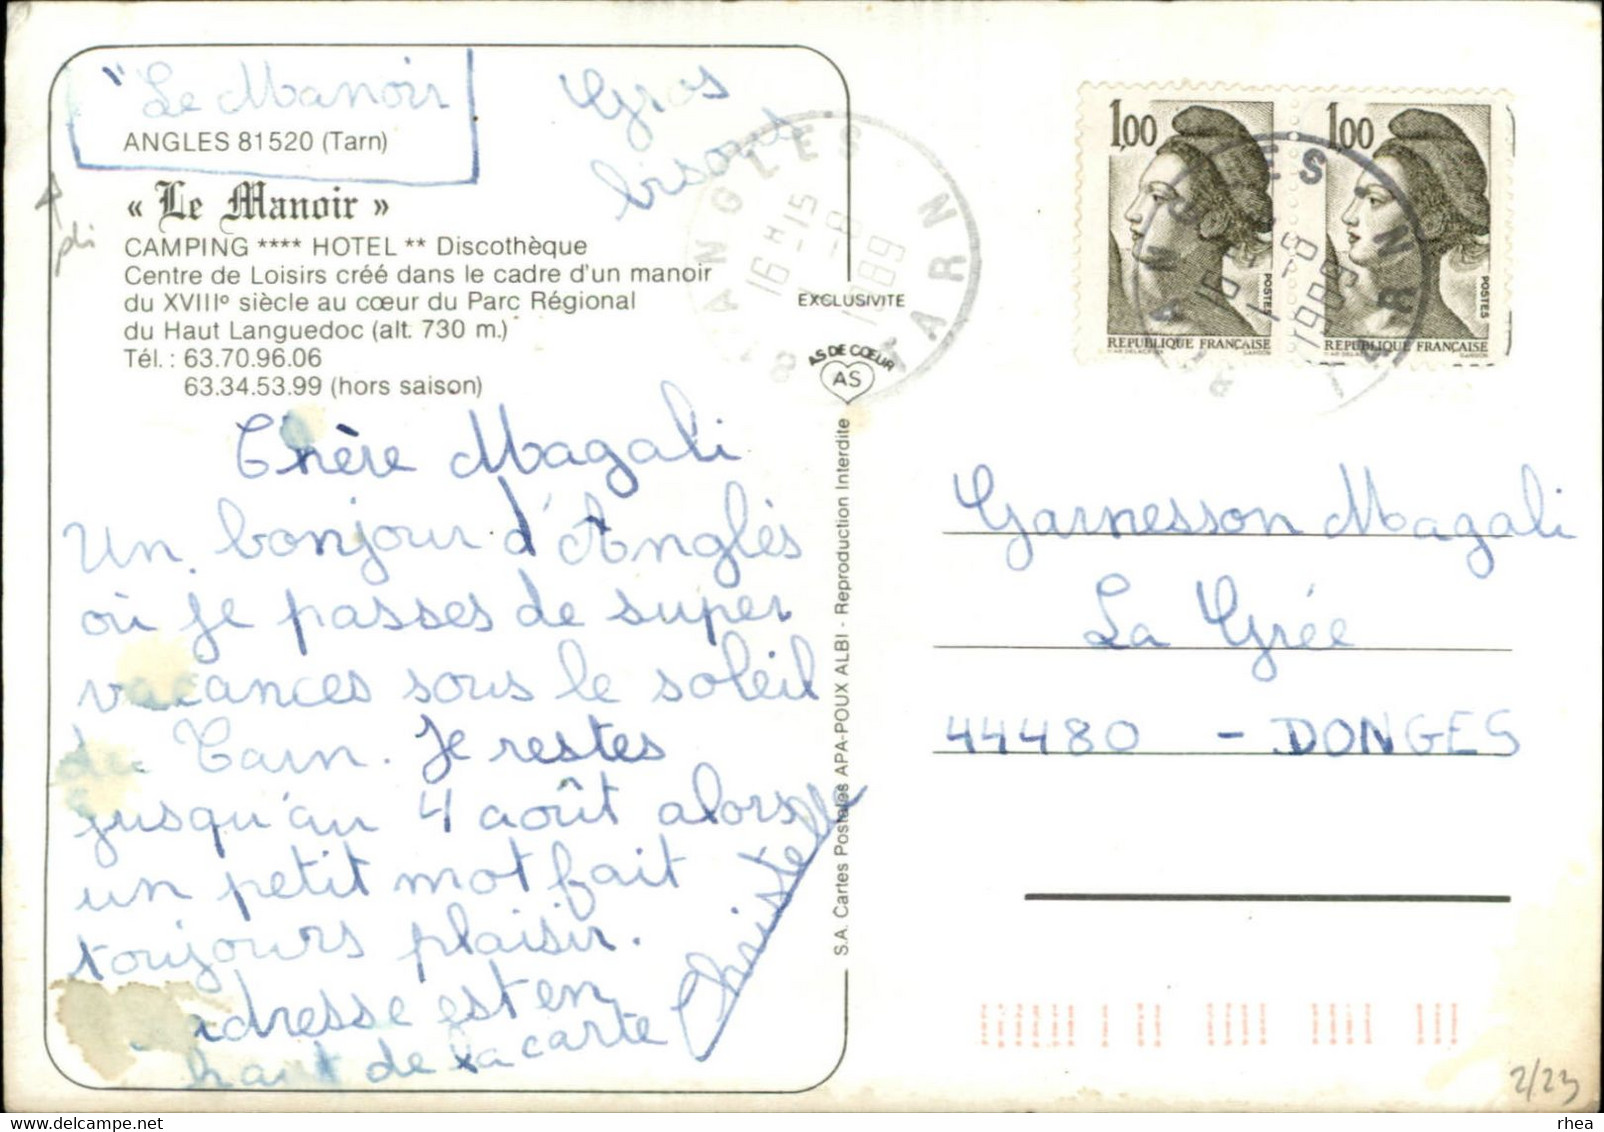 "Le Manoir
ANGLES 81520 (Tarn)
Gros
bisous
« Le Manoir »
CAMPING **** HOTEL ** Discothèque
Centre de Loisirs créé dans le cadre d'un manoir
du XVIII° siècle au cœur du Parc Régional
du Haut Languedoc (alt. 730 m.)
Tél. : 63.70.96.06
63.34.53.99 (hors saison)
Chère Magali
Un bonjour d'Anglès
où je passes de super
vacances sous le soleil
du Tarn. Je restes
jusqu'au 4 août alors
un petit mot fait
toujours plaisir.
adresse est en
haut de la carte
Christelle
EXCLUSIVITE
AS DE CŒUR
AS
S.A. Cartes Postales APA-POUX ALBI - Reproduction Interdite
81 ANGLES TARN
16 H 15
1 - 8
1989
1,00
POSTES
REPUBLIQUE FRANÇAISE
1,00
POSTES
REPUBLIQUE FRANÇAISE
Garnesson Magali
La Grée
44480 - DONGES
2/23
rhea